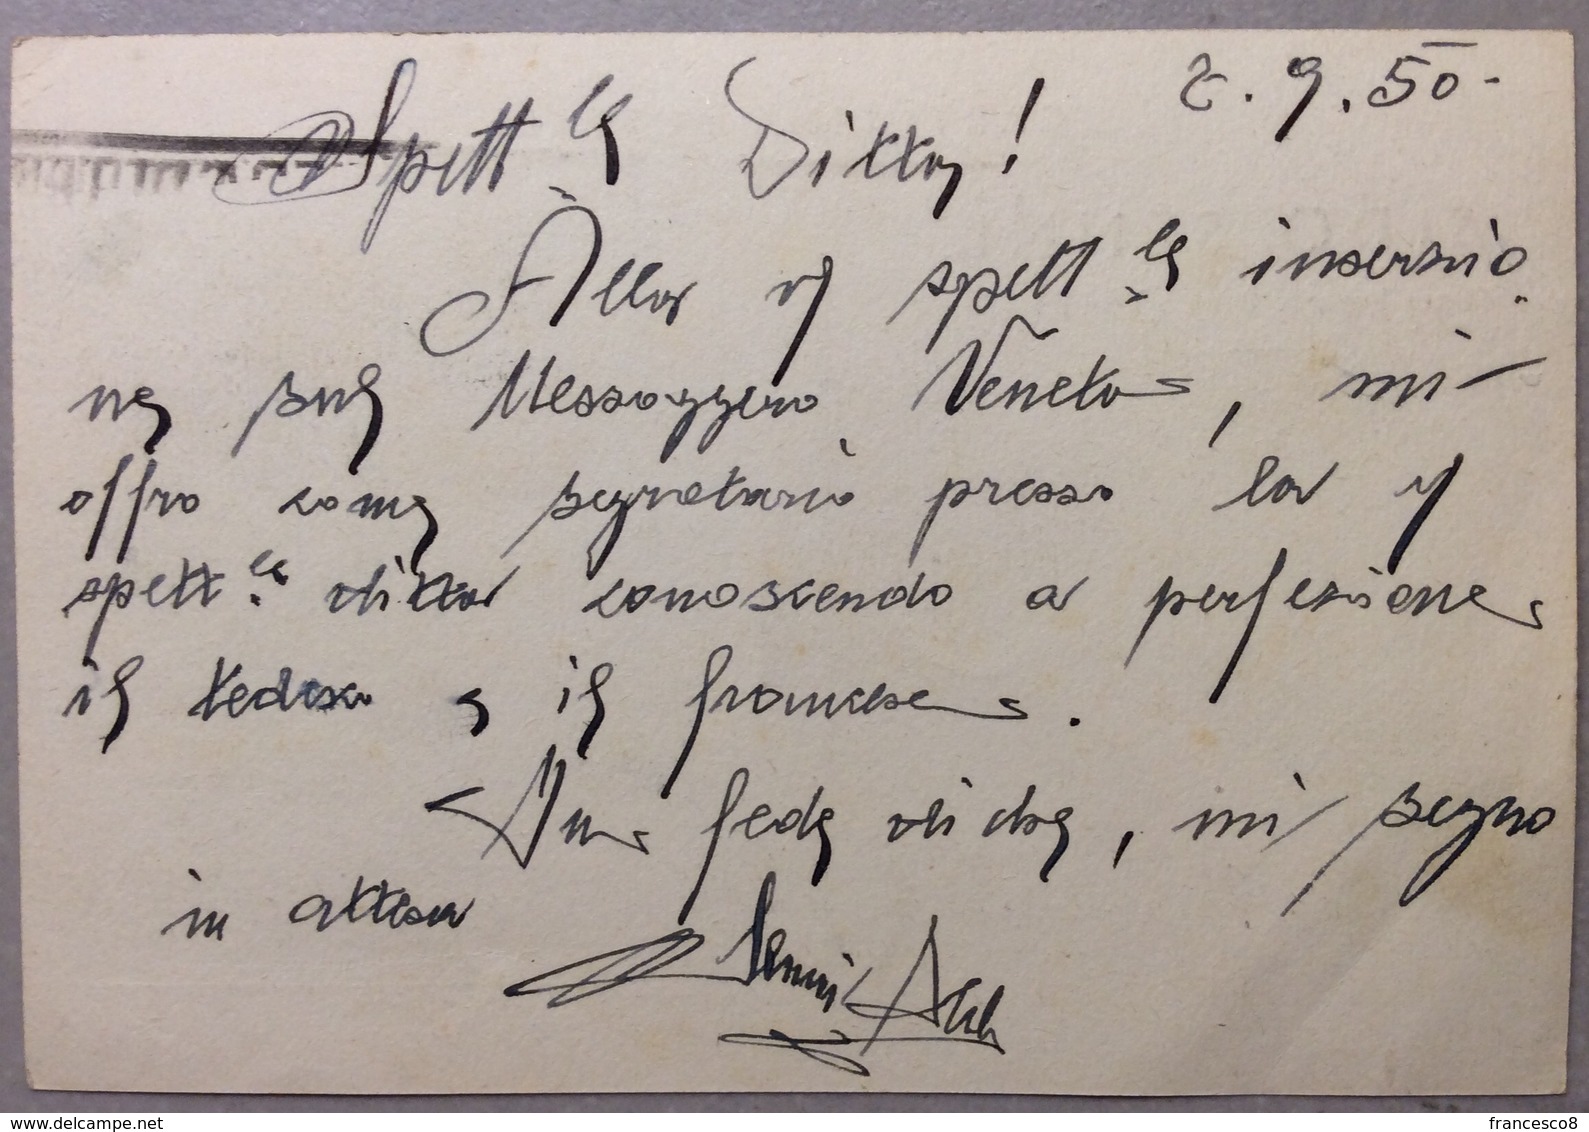 2.9.50.-
Spett.le Ditta!
Alla v/ spett.le inserzio-
ne sul Messaggero Veneto, mi
offro come segretario presso la v/
spett.le ditta conoscendo a perfezione
il tedesco e il francese.
In fede di che, mi segno
in attesa
www.delcampe.net
francesco8